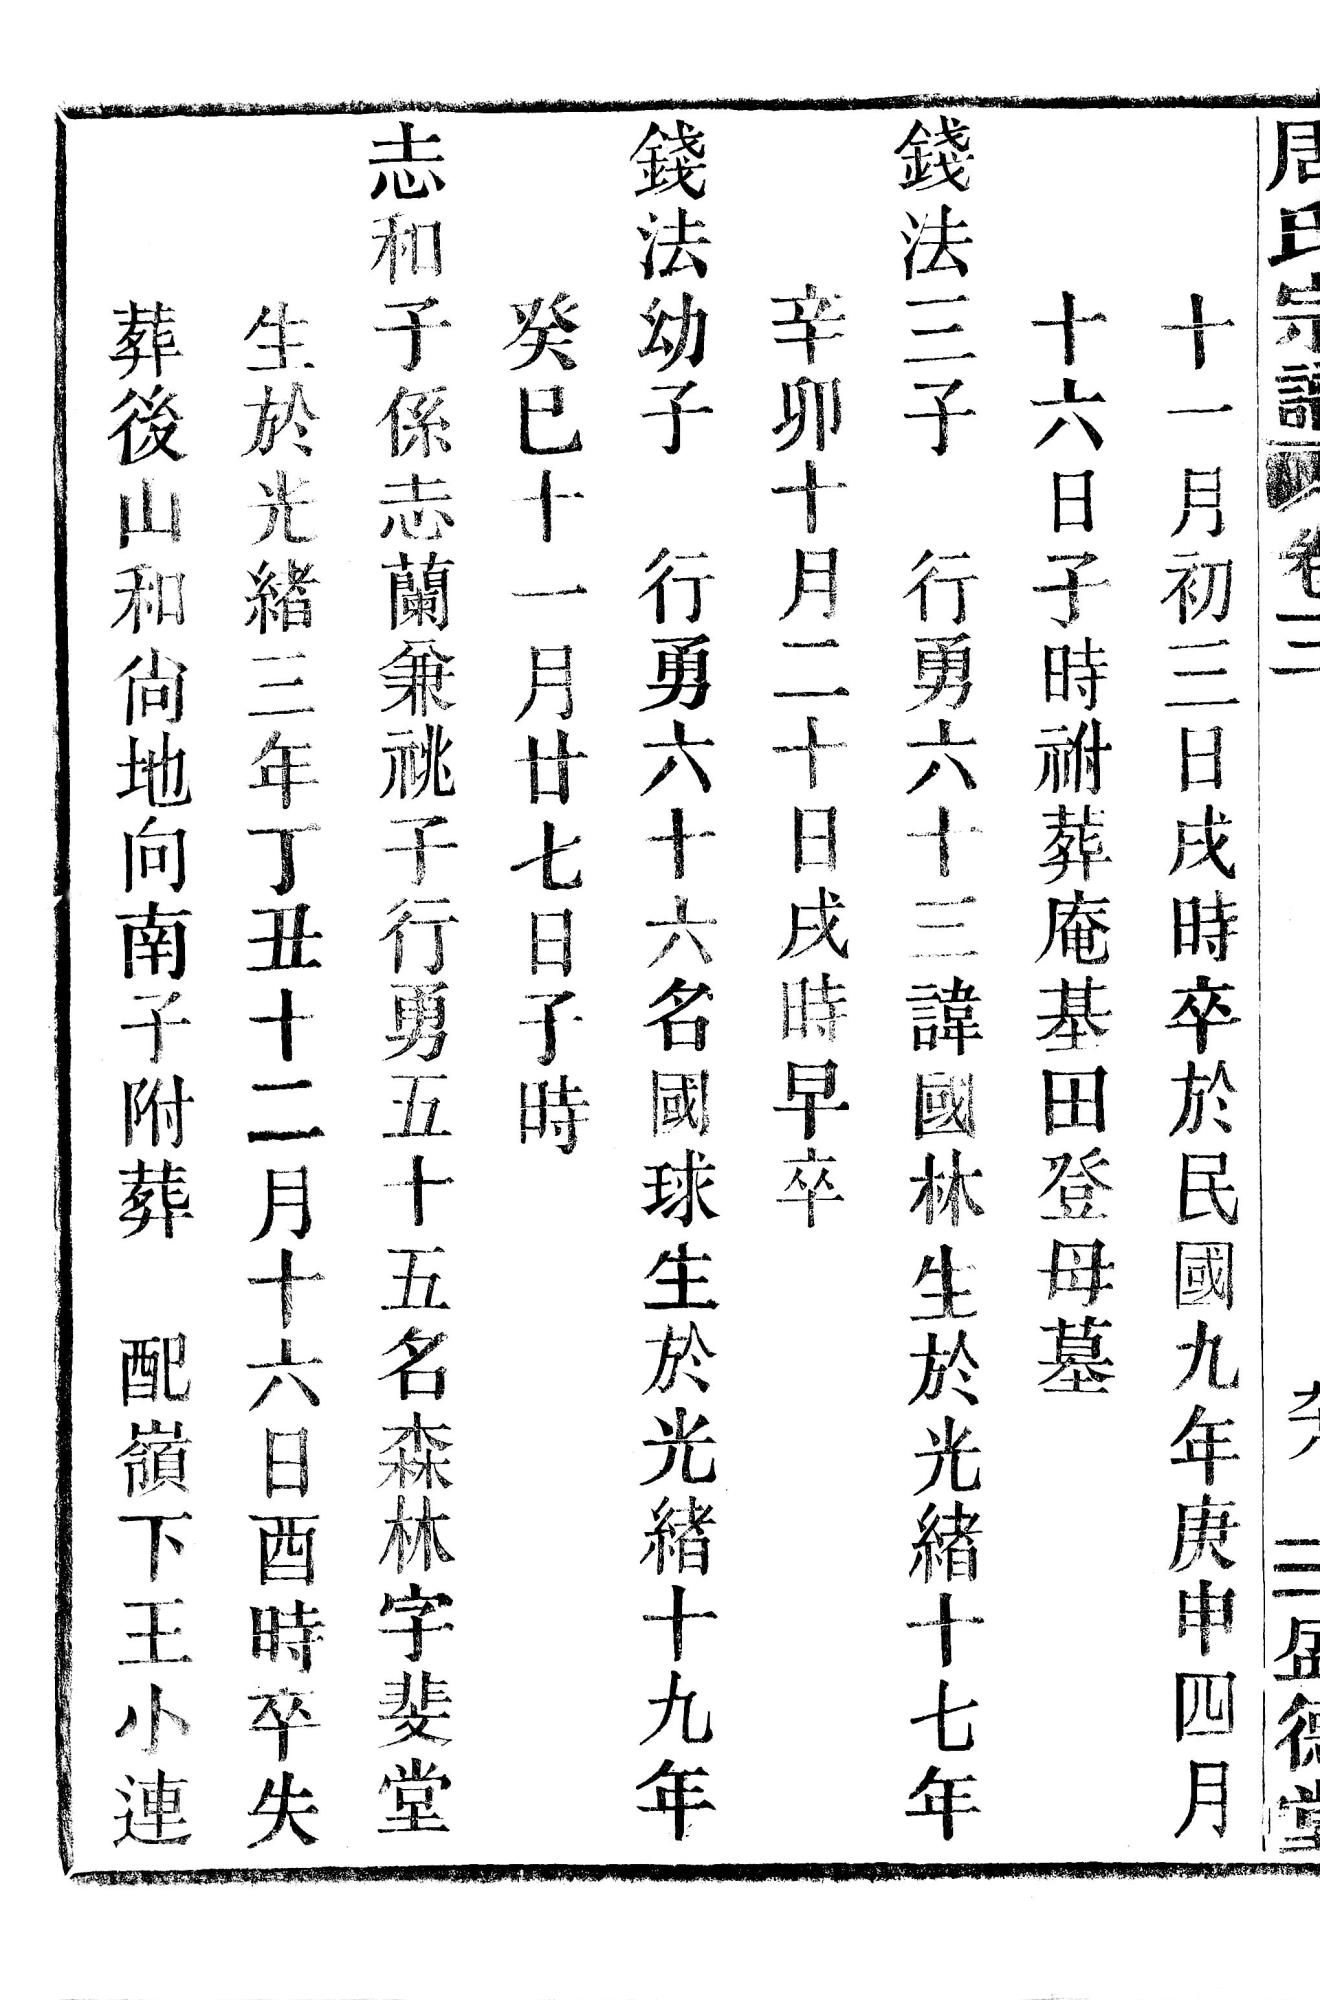 周氏宗譜 卷三 盛德堂
十一月初三日戌時卒於民國九年庚申四月
十六日子時祔葬庵基田登母墓
錢法三子 行勇六十三諱國林生於光緒十七年
辛卯十月二十日戌時早卒
錢法幼子 行勇六十六名國球生於光緒十九年
癸巳十一月廿七日子時
志和子係志蘭兼祧子行勇五十五名森林字斐堂
生於光緒三年丁丑十二月十六日酉時卒失
葬後山和尙地向南子附葬 配嶺下王小連